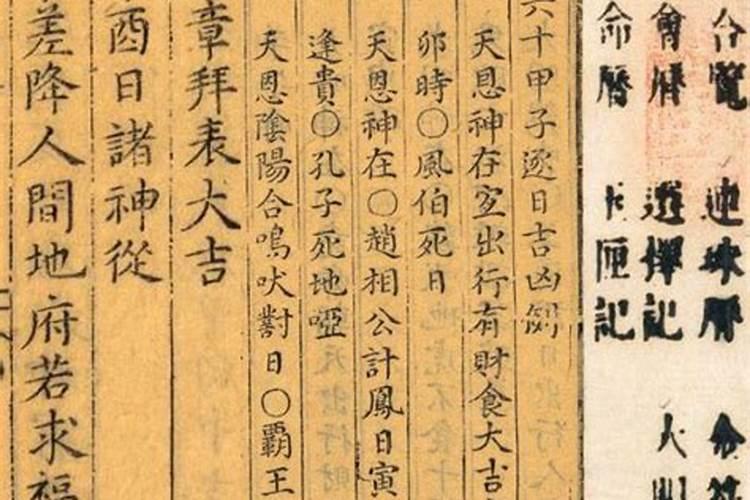 台覽 連珠曆
會曆 選擇記 大
命曆 匣記
六十甲子逐日吉凶
天恩神在室出行有財食大吉
卯時〇風伯死日
天恩神在〇趙相公計鳳日寅
逢貴〇孔子死地啞
天恩陰陽合鳴吠對日〇覇王
章拜表大吉
酉日諸神從
差降人間地府若求福